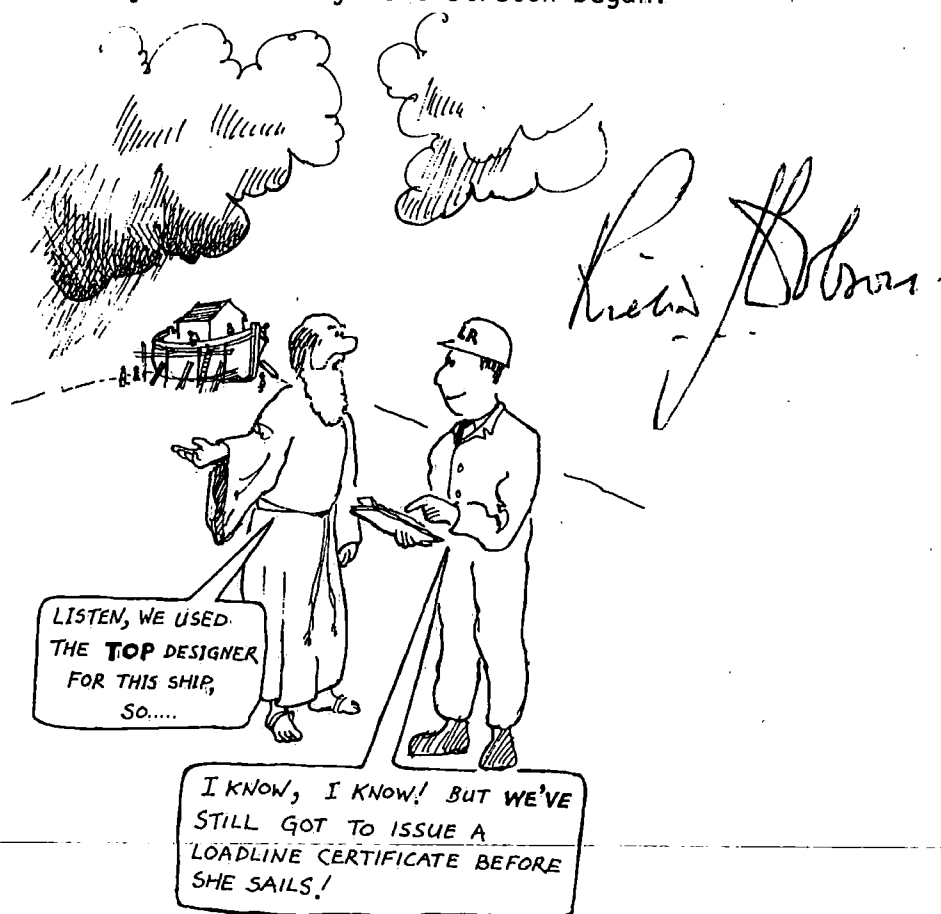 began.
LR
LISTEN, WE USED
THE TOP DESIGNER
FOR THIS SHIP,
SO.....
I KNOW, I KNOW! BUT WE'VE
STILL GOT TO ISSUE A
LOADLINE CERTIFICATE BEFORE
SHE SAILS!